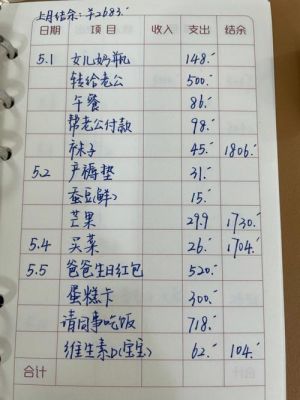 上月结余:￥2683.-
日期 项目 收入 支出 结余
5.1 女儿奶瓶 148.-
转给老公 500.-
午餐 86.-
帮老公付款 98.-
袜子 45.- 1806.-
5.2 产褥垫 31.-
蚕豆(鲜) 15.-
芒果 29.9 1730.-
5.4 买菜 26.- 1704.-
5.5 爸爸生日红包 520.-
蛋糕卡 300.-
请同事吃饭 718.-
维生素D(宝宝) 62.- 104.-
合计 合计